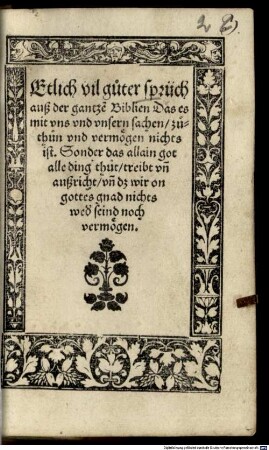 Etlich vil gůter sprüch
auß der gantzē Biblien Das es
mit vns vnd vnsern sachen/ zů-
thůn vnd vermögen nichts
ist. Sonder das allain got
alle ding thůt/ treibt vñ
außricht/ vñ dz wir on
gottes gnad nichts
wed̕ seind noch
vermögen.